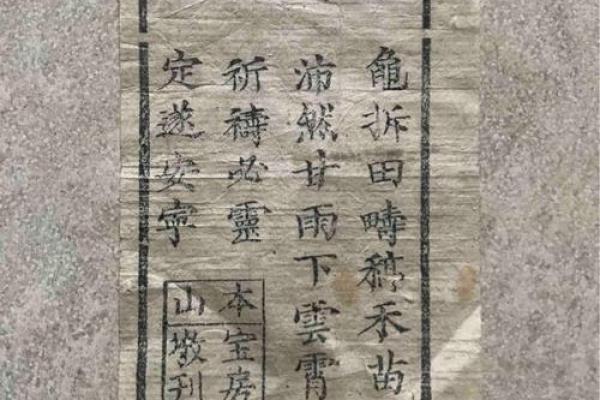 龜拆田疇稿禾苗
沛然甘雨下雲霄
祈禱必靈
定遂安寧
本宝房
山刊